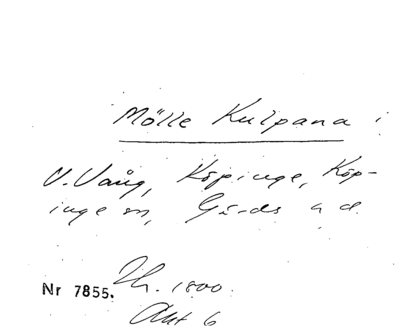 Mölle Kulpana i
V. Vång, Köpinge, Köp-
inge sn, Gärds h d.
Nr 7855. 1800.
Akt 6